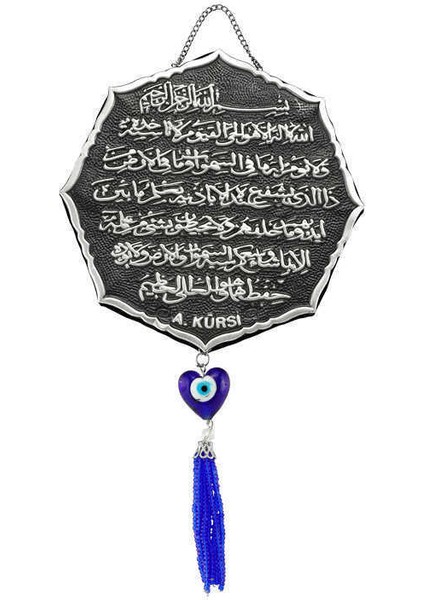 بسم الله الرحمن الرحيم
الله لا اله الا هو الحي القيوم لا تاخذه سنة
ولا نوم له ما في السموات وما في الارض من
ذا الذي يشفع عنده الا باذنه يعلم ما بين
ايديهم وما خلفهم ولا يحيطون بشئ من علمه
الا بما شاء وسع كرسيه السموات والارض ولا يؤده
حفظهما وهو العلي العظيم
A. KÜRSİ